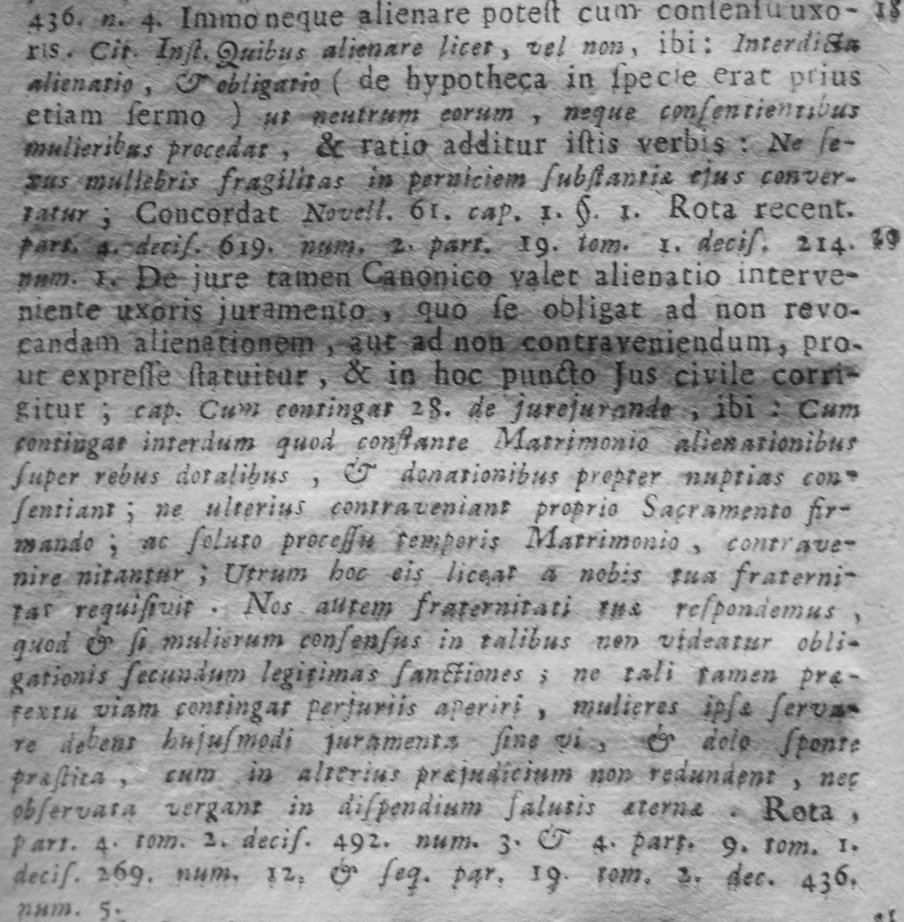 436. n. 4. Immo neque alienare poteſt cum conſenſu uxo- 18
ris. Cit. Inſt. Quibus alienare licet, vel non, ibi: Interdicta
alienatio, & obligatio ( de hypotheca in ſpecie erat prius
etiam ſermo ) ut neutrum eorum, neque conſentientibus
mulieribus procedat, & ratio additur iſtis verbis: Ne ſe-
xus muliebris fragilitas in perniciem ſubſtantiæ ejus conver-
tatur; Concordat Novell. 61. cap. 1. §. 1. Rota recent.
part. 4. deciſ. 619. num. 2. part. 19. tom. 1. deciſ. 214. 19
num. 1. De jure tamen Canonico valet alienatio interve-
niente uxoris juramento, quo ſe obligat ad non revo-
candam alienationem, aut ad non contraveniendum, pro-
ut expreſſe ſtatuitur, & in hoc puncto Jus civile corri-
gitur; cap. Cum contingat 28. de jurejurando, ibi: Cum
contingat interdum quod conſtante Matrimonio alienationibus
ſuper rebus dotalibus, & donationibus propter nuptias con-
ſentiant; ne ulterius contraveniant proprio Sacramento fir-
mando; ac ſoluto proceſſu temporis Matrimonio, contrave-
nire nitantur; Utrum hoc eis liceat a nobis tua fraterni-
tas requiſivit. Nos autem fraternitati tuæ reſpondemus,
quod & ſi mulierum conſenſus in talibus non videatur obli-
gationis ſecundum legitimas ſanctiones; ne tali tamen præ-
textu viam contingat perjuriis aperiri, mulieres ipſæ ſerva-
re debent hujuſmodi juramenta ſine vi, & dolo ſponte
præſtita, cum in alterius præjudicium non redundent, nec
obſervata vergant in diſpendium ſalutis æternæ. Rota,
part. 4. tom. 2. deciſ. 492. num. 3. & 4. part. 9. tom. 1.
deciſ. 269. num. 12. & ſeq. par. 19. tom. 2. dec. 436.
num. 5.